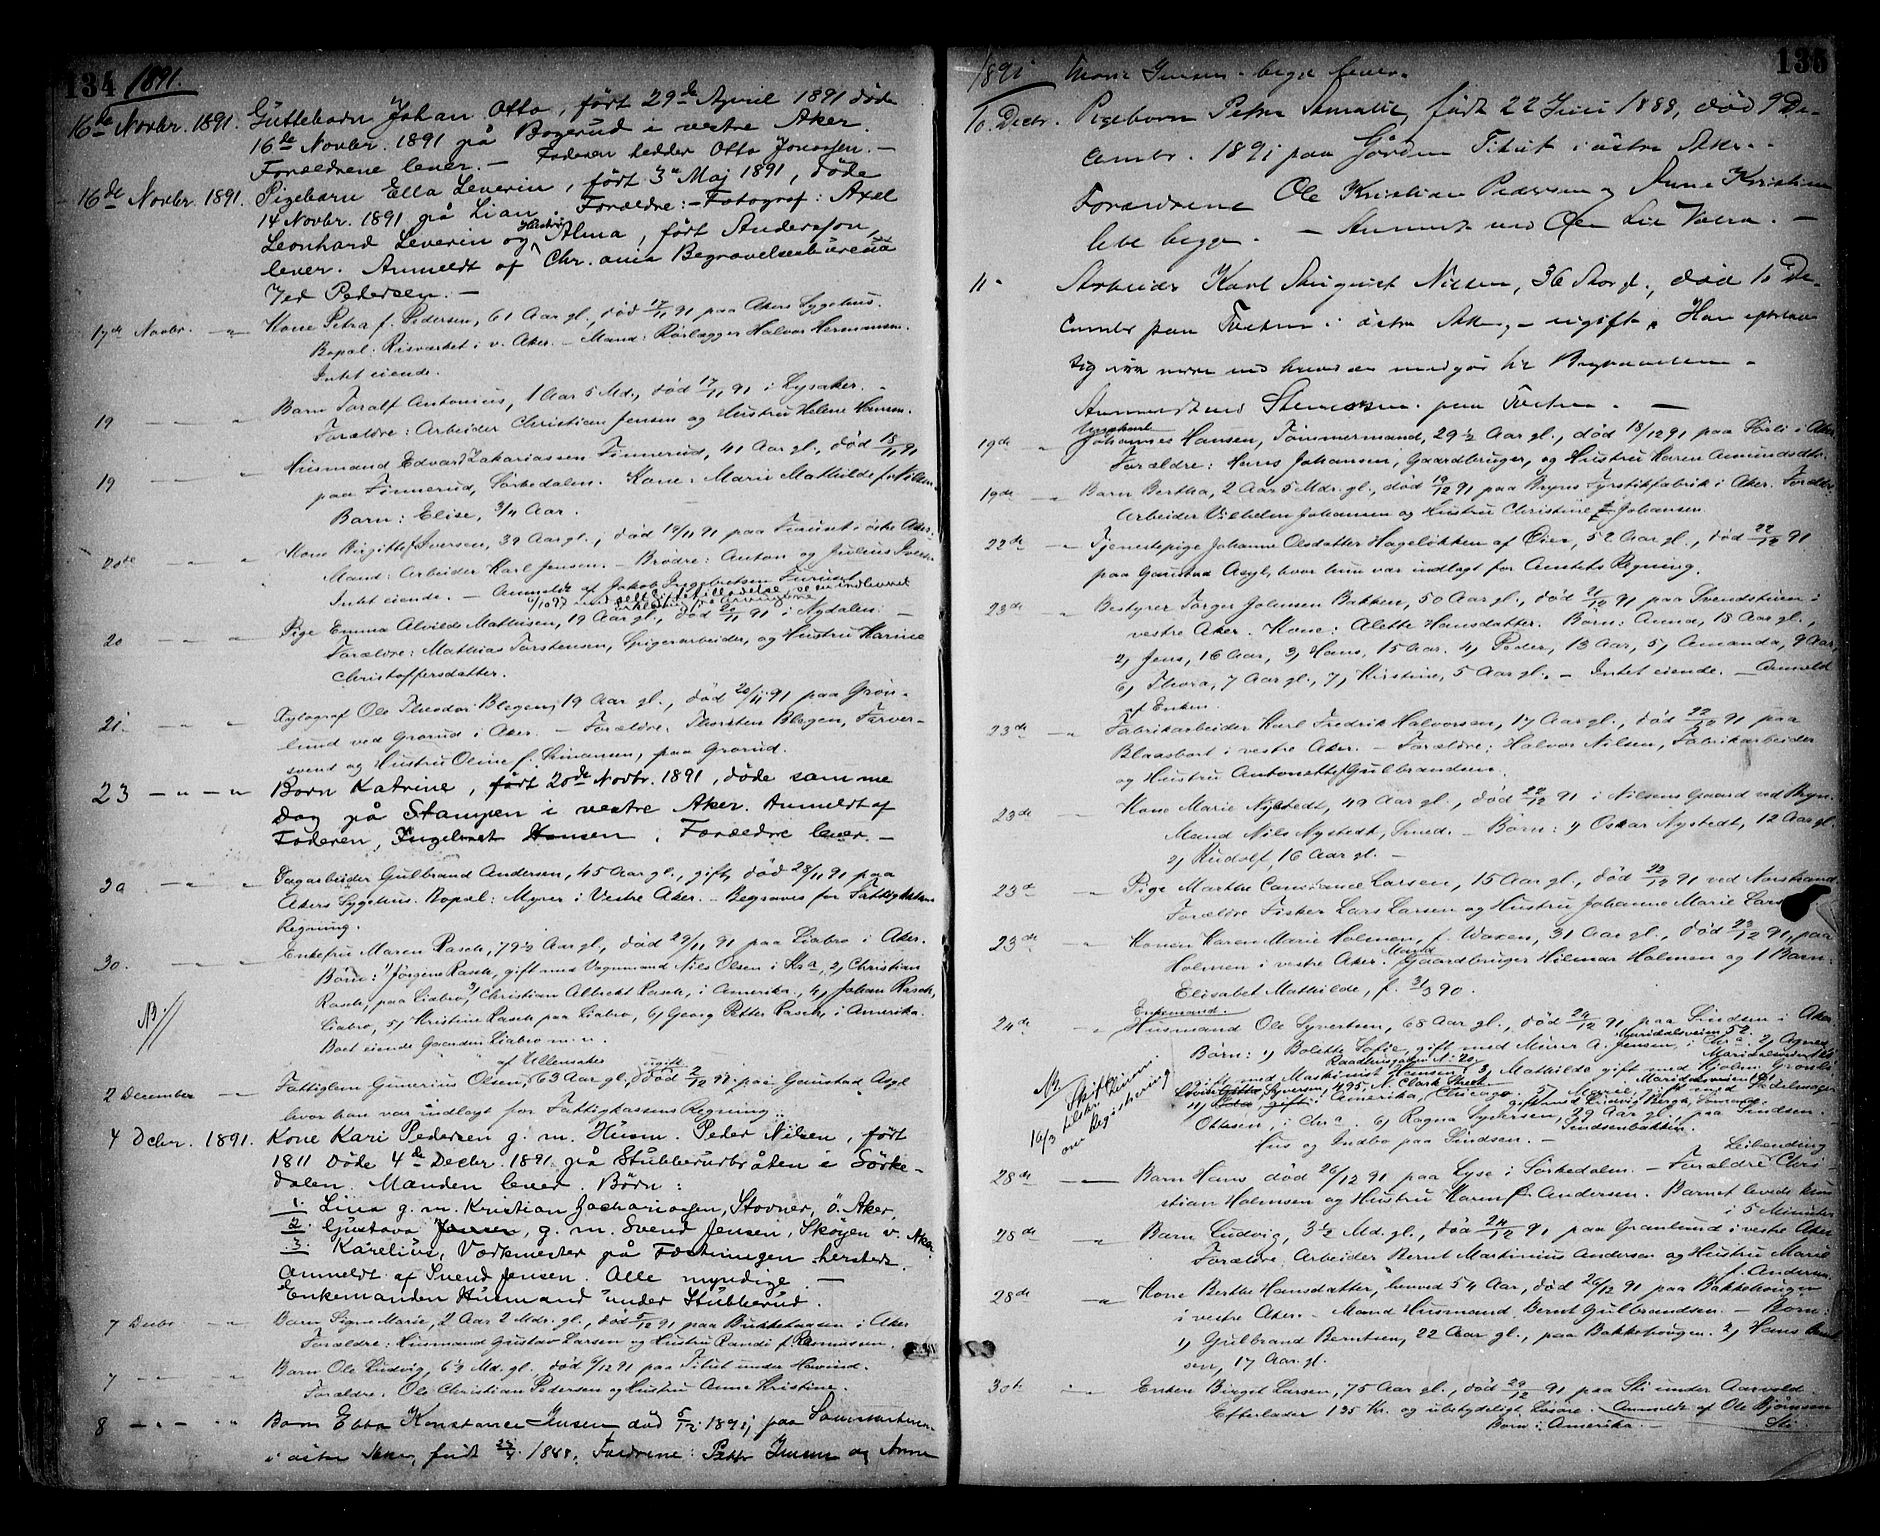 134 1891.
16de Novbr. 1891. Guttebarn Johan Otto, født 29de April 1891 døde
16de Novbr. 1891 på Bogerud i vestre Aker.
Forældrene lever. — Faderen hedder Otto Jonassen. —
16de Novbr. 1891. Pigebarn Ella Leverin, født 3de Maj 1891, døde
14 Novbr. 1891 på Lian. Forældre: — Fotograf: Axel
Leonhard Leverin og Hustru Alma, født Andersson,
lever. Anmeldt af Chr.ania Begravelsesbureau
ved Pedersen. —
17de Novbr. — " Kone Petra f. Pedersen, 61 Aar gl., død 17/11 91 paa Akers Sygehus.
Bopæl: Risværket i v. Aker. — Mand: Rørlægger Halvor Hermansen.
Intet eiende.
19 — " — " Barn Toralf Antonius, 1 Aar 5 Md., død 17/11 91 i Lysaker. —
Forældre: Arbeider Christian Jensen og Hustru Helene Hansen.
19 — " — " Husmand Edvard Zakariassen Finnerud, 41 Aar gl., død 18/11 91
paa Finnerud, Sørkedalen. Kone: Marie Mathilde f. Nilsen.
Barn: Elise, 3/4 Aar.
20de — " — " Kone Birgitte f. Iversen, 39 Aar gl., død 19/11 91 paa Furuset i østre Aker.
Mand: Arbeider Karl Jensen. — Brødre: Anton og Julius Iversen
Intet eiende. — Anmeldt af Jakob Ingebretsen Furuset
20 — " — " Pige Emma Alvilde Mathisen, 19 Aar gl., død 20/11 91 i Nydalen. —
Forældre: Mathias Torstensen, Spigerarbeider, og Hustru Karine
Christoffersdatter.
21 — " — " Xylograf Ole Theodor Blegen, 19 Aar gl., død 20/11 91 paa Grøn-
lund ved Grorud i Aker. — Forældre: Thorsten Blegen, Farver-
svend og Hustru Oline f. Simensen, paa Grorud.
23 — " — " Barn Katrine, født 20de Novbr. 1891, døde samme
Dag på Stampen i vestre Aker. Anmeldt af
Faderen, Ingebret Hansen. Forældre lever. —
30 — " — " Dagarbeider Gulbrand Andersen, 45 Aar gl., gift, død 28/11 91 paa
Akers Sygehus. Bopæl: Myrer i Vestre Aker. — Begraves for Fattigkassens
Regning.
30. — " — " Enkefru Maren Rasch, 79½ Aar gl., død 29/11 91 paa Liabro i Aker.
Børn: 1) Jørgine Rasch, gift med Vognmand Nils Olsen i Kra, 2) Christian
Rasch, paa Liabro, 3) Christian Albrekt Rasch, i Amerika, 4) Johan Rasch,
Liabro, 5) Kristine Rasch paa Liabro, 6) Georg Petter Rasch, i Amerika.
NB. Boet eiende Gaarden Liabro m. m.
af Ullensaker ugift
2 December — " Fattiglem Gunerius Olsen, 63 Aar gl., død 2/12 91 paa Gaustad Asyl
hvor han var indlagt for Fattigkassens Regning.
4 Decbr. 1891. Kone Kari Pedersen g. m. Husm. Peder Nilsen, født
1811 døde 4de Decbr. 1891 på Stubberudbråten i Sørke-
dalen. Manden lever. Børn:
1. Lina g. m. Kristian Zachariasen, Stovner, ö. Aker,
2. Gustava Jensen, g. m. Svend Jensen, Skøyen v. Aker.
3. Karelius, Værkmester på Fæstningen hersteds.
Anmeldt af Svend Jensen. Alle myndige. —
Enkemanden Husmand under Stubberud.
7 Decbr. — " Barn Signe Marie, 2 Aar 2 Mdr. gl., død 5/12 91 paa Bukkehaasen i Aker
Forældre: Husmand Gustav Larsen og Hustru Randi f. Rasmussen.
7 — " — " Barn Ole Ludvig, 6½ Md. gl., død 6/12 91 paa Tilut under Hovind.
Forældre: Ole Christian Pedersen og Hustru Anne Kristine.
8 — " — " Barn Ebba Konstance Jensen død 5/12 1891 paa
i østre Aker, født 1888, Forældrene: Petter Jensen og Anne
1891 Marie Jensen — begge lever. 135
10. Decbr. Pigebarn Petra Amalie, født 22 Juni 1888, død 9 De-
cember 1891 paa Gården Tilut i østre Aker. —
Forældrene Ole Kristian Pedersen og Anne Kristine
leve begge. — Anmeldt ved
11 " Arbeider Karl August Nilsen, 36 Aar gl., død 10 De-
cember paa Tveten i østre Aker, — ugift. Han efterlader
sig ikke mere end hvad der medgår til Begravelsen.
Anmeldt ved Stenersen paa Tveten. —
Ungkarl
19de " Johannes Hansen, Tømmermand, 29½ Aar gl., død 18/12 91 paa Sørli i Aker
Forældre: Hans Johansen, Gaardbruger, og Hustru Karen Amundsdtr.
19de — " Barn Bertha, 2 Aar 5 Mdr. gl., død 19/12 91 paa Bryns Fyrstikfabrik i Aker. Forældre
Arbeider Vilhelm Johansen og Hustru Christine f. Johansen.
22de — " Tjenestepige Johanne Olsdatter Hageløkken af Øier, 52 Aar gl., død 22/12 91
paa Gaustad Asyl, hvor hun var indlagt for Amtets Regning.
23de " Bestyrer Torger Johnsen Bakken, 50 Aar gl., død 21/12 91 paa Svendstuen i
vestre Aker. Kone: Alette Hansdatter. Børn: Anna, 18 Aar gl.,
2) Jens, 16 Aar, 3) Hans, 15 Aar. 4) Peder, 13 Aar, 5) Amanda, 9 Aar,
6) Thora, 7 Aar gl., 7) Kirstine, 5 Aar gl. — Intet eiende. — Anmeldt
af Enken.
23de — " Fabrikarbeider Karl Fredrik Halvorsen, 17 Aar gl., død 22/12 91 paa
Blaasbort i vestre Aker. — Forældre: Halvor Nilsen, Fabrikarbeider
og Hustru Antonette f. Gulbrandsen.
23de " Kone Marie Nystedt, 49 Aar gl., død 22/12 91 i Nilsens Gaard ved Bryn.
Mand Nils Nystedt, Smed. — Børn: 1) Oskar Nystedt, 12 Aar gl.
2) Rudolf, 16 Aar gl. —
23de " Pige Marthe Constance Larsen, 15 Aar gl., død 22/12 91 ved Norstrand
Forældre Fisker Lars Larsen og Hustru Johanne Marie Lars
23de " Konen Karen Marie Holmen, f. Waxen, 31 Aar gl., død 23/12 91, paa
Holmen i vestre Aker. Mand Gaardbruger Hilmar Holmen og 1 Barn
Elisabet Mathilde, f. 31/3 90.
Enkemand.
24de " Husmand Ole Syvertsen, 68 Aar gl., død 24/12 91 paa Sindsen i Aker
Børn: 1) Bolette Sofie, gift med Murer A. Jensen, i Chra. 2) Agnes,
gift med Maskinist Hansen, 3) Mathilde gift med Hjalm. Grønli
Syversen, 495, N. Clark Street
4) gift i Amerika, Chicago. 5) Marie, gift med
Ottesen, i Chra. 6) Ragna Syversen, 29 Aar gl., paa Sindsen. —
Hus og Indbo paa Sindsen. — Sindsenbakken.
NB Skiftet
16/3
om Registrering
28de — Barn Hans død 26/12 91 paa Lyse i Sørkedalen. — Forældre Leilending Chri-
stian Holmsen og Hustru Karen f. Andersen. Barnet levede kun
i 5 Minuter
28de " Barn Ludvig, 3½ Md. gl., død 24/12 91 paa Granlund i vestre Aker
Forældre: Arbeider Bernt Martinius Andersen og Hustru Marie
f. Andersen.
28de " Kone Berthe Hansdatter, henved 54 Aar, død 26/12 91 paa Bakkehougen
i vestre Aker. — Mand Husmand Bernt Gulbrandsen. — Børn:
1) Gulbrand Berntsen, 22 Aar gl., paa Bakkehougen. 2) Hans Bernt-
sen, 17 Aar gl.
30te " Enken Birget Larsen, 75 Aar gl., død 29/12 91 paa Sti under Aarvold.
Efterlader 135 Kr. og ubetydeligt Løsøre. Anmeldt af Ole Bjørnsen
Børn i Amerika. — Sti.